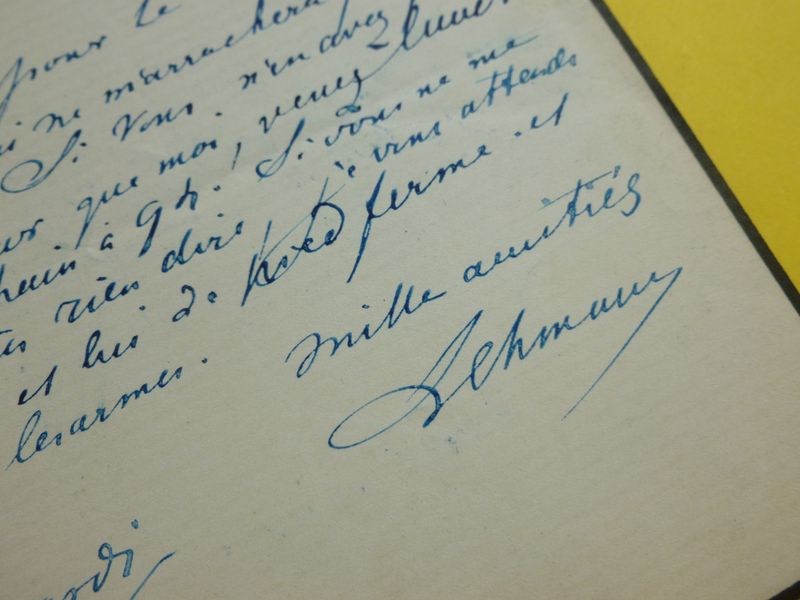 pour le
ne m'arrachera
Si vous n'en avez
que moi, venez
à 9 h. Si vous ne me
rien dire, je vous attends
et suis de pied ferme et
les armes.
Mille amitiés
Lehmann